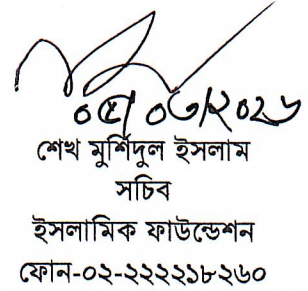 ০৫/০৩/২০২৬
শেখ মুর্শিদুল ইসলাম
সচিব
ইসলামিক ফাউন্ডেশন
ফোন-০২-২২২২১৮২৬০